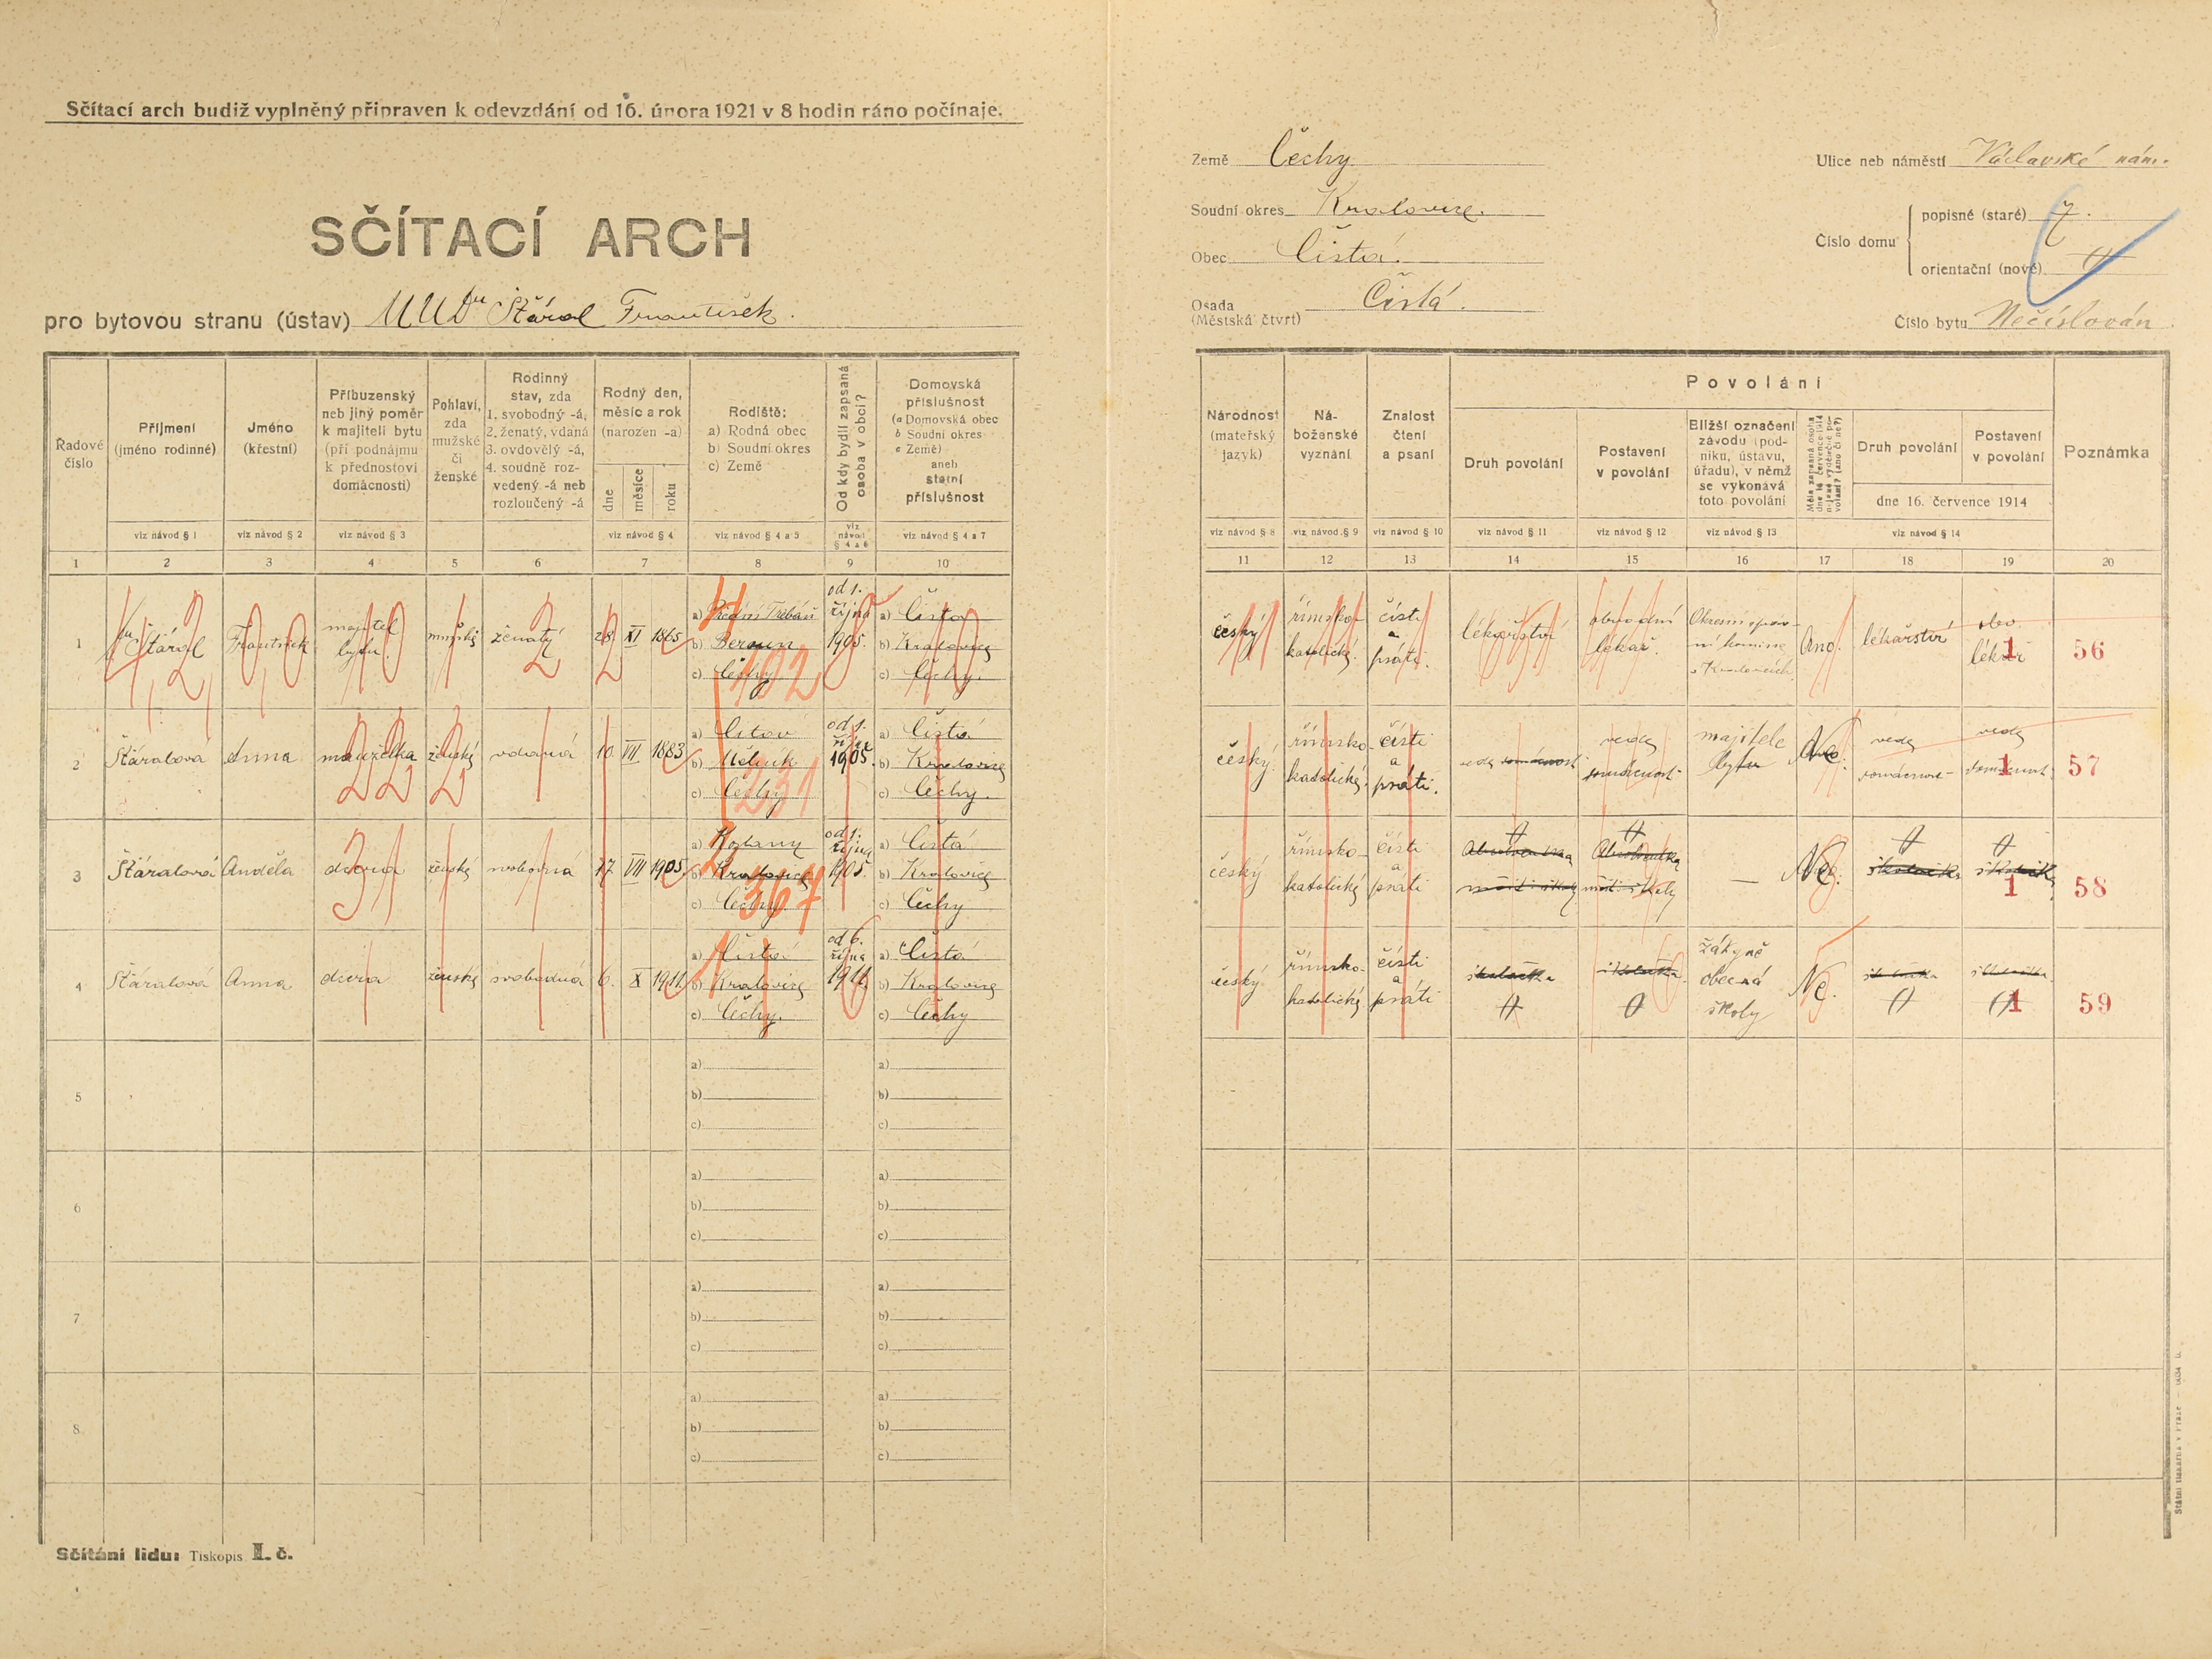 Sčítací arch budiž vyplněný připraven k odevzdání od 16. února 1921 v 8 hodin ráno počínaje.
SČÍTACÍ ARCH
pro bytovou stranu (ústav) MUDr Štáral František.
Země Čechy
Soudní okres Kralovice.
Obec Čistá.
Osada (Městská čtvrť) Čistá.
Ulice neb náměstí Václavské nám.
Číslo domu
popisné (staré) 7.
orientační (nové)
Číslo bytu Nečíslován
Řadové číslo
Příjmení (jméno rodinné)
Jméno (křestní)
Příbuzenský neb jiný poměr k majiteli bytu (při podnájmu k přednostovi domácnosti)
Pohlaví, zda mužské či ženské
Rodinný stav, zda 1. svobodný -á, 2. ženatý, vdaná 3. ovdovělý -á, 4. soudně rozvedený -á neb rozloučený -á
Rodný den, měsíc a rok (narozen -a)
dne měsíce roku
Rodiště: a) Rodná obec b) Soudní okres c) Země
Od kdy bydlí zapsaná osoba v obci?
Domovská příslušnost (a Domovská obec b Soudní okres c Země) aneb státní příslušnost
Národnost (mateřský jazyk)
Náboženské vyznání
Znalost čtení a psaní
Povolání
Druh povolání
Postavení v povolání
Bližší označení závodu (podniku, ústavu, úřadu), v němž se vykonává toto povolání
Druh povolání
Postavení v povolání
dne 16. července 1914
Poznámka
viz návod § 1 viz návod § 2 viz návod § 3 viz návod § 4 viz návod § 4 a 5 viz návod § 4 a 6 viz návod § 4 a 7
viz návod § 8 viz návod § 9 viz návod § 10 viz návod § 11 viz návod § 12 viz návod § 13 viz návod § 14
1 2 3 4 5 6 7 8 9 10
11 12 13 14 15 16 17 18 19 20
1 Štáral František majitel bytu. mužský ženatý 28. XI 1865
a) Přední Třebáň b) Beroun c) Čechy
od 1. října 1905.
a) Čistá b) Kralovice c) Čechy.
český římsko katolické. čísti a psáti. lékařství obvodní lékař. Ano. lékařství obv. lékař 1 56
2 Štáralová Anna manželka ženský vdaná 10. VII 1883
b) Mělník c) Čechy
od 1. 1905.
a) Čistá b) Kralovice c) Čechy.
český. římsko-katolické. čísti a psáti. vede domácnost vede domácnost majitele bytu Ne. vede domácnost vede domácnost 1 57
3 Štáralová Anděla dcera ženský svobodná 17. VII 1905
b) Kralovice c) Čechy.
od 1. října 1905.
a) Čistá b) Kralovice c) Čechy
český římsko-katolické čísti a psáti — Ne. školačka školačka 1 58
4 Štáralová Anna dcera ženský svobodná 6. X 1911.
a) Čistá b) Kralovice c) Čechy.
od 6. října 1911.
a) Čistá b) Kralovice c) Čechy
český římsko-katolické čísti a psáti školačka školačka žákyně obecná školy Ne. školačka školačka 1 59
102
231
367
5 a) b) c) a) b) c)
6 a) b) c) a) b) c)
7 a) b) c) a) b) c)
8 a) b) c) a) b) c)
Sčítání lidu: Tiskopis I. č.